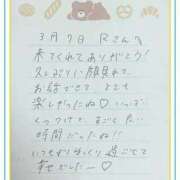 3月7日 Rさん
来てくれてありがとう!
久しぶりに顔見れて
お話できて とても
楽しかったね♡いっぱい
くっつけて、すごした
時間だったね!!
いつもよりゆっくり過ごせて
幸せでした〜♡